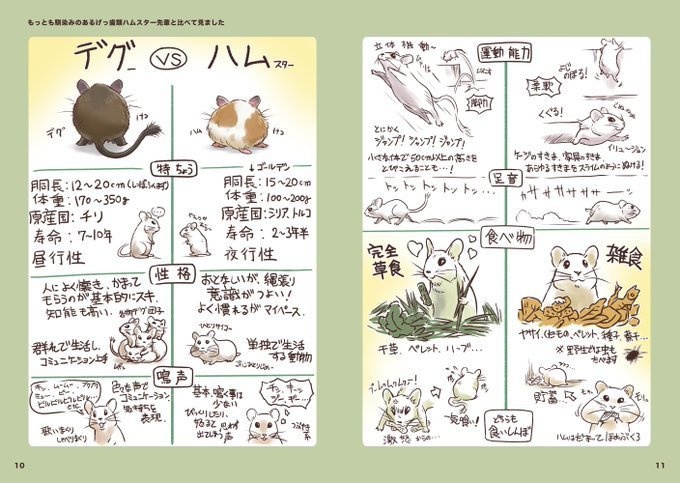 もっとも馴染みのあるげっ歯類ハムスター先輩と比べて見ました
デグー VS ハムスター
デグ
けつ
ハム
けつ
特ちょう
胴長:12~20cm(しっぽふくまず)
体重:170~350g
原産国:チリ
寿命:7~10年
昼行性
↓ゴールデン
胴長:15~20cm
体重:100~200g
原産国:シリア、トルコ
寿命:2~3年半
夜行性
性格
人によく懐き、かまって
もらうのが基本的にスキ。
知能も高い。
デグ団子
群れで生活し、
コミュニケーション上手
おとないが、縄張り
意識がつよい!
よく慣れるがマイペース。
単独で生活
する動物
鳴声
キュ、ムームー
ピルピルピルピル...
etc.
色々な声で
コミュニケーション。
気持ちを
表現。
歌いまくり
しゃべりまくり
基本、鳴く事は
少ない
びっくりしたり、
怒ると思わず
出てしまう声
10
運動能力
立体移動~
脚力
とにかく
ジャンプ!ジャンプ!ジャンプ!
小さな体で50cm以上の高さを
とびこえることも...!
よじのぼる!
柔軟
くぐる!
イリュージョン
ケージのすきま、家具のすきま、
あらゆるすきまをスライムのようにぬける!
足音
トン トン トン トン...
サササササササ
食べ物
完全
草食
干草、ペレット、ハーブ...
雑食
ヤサイ、くだもの、ペレット、種子、養干...
※野生では虫も
たべます
激怒からの...
気喰い!
どちらも
食いしんぼ
貯蓄...
モリッ
ハムはだまってほおぶくろ
11